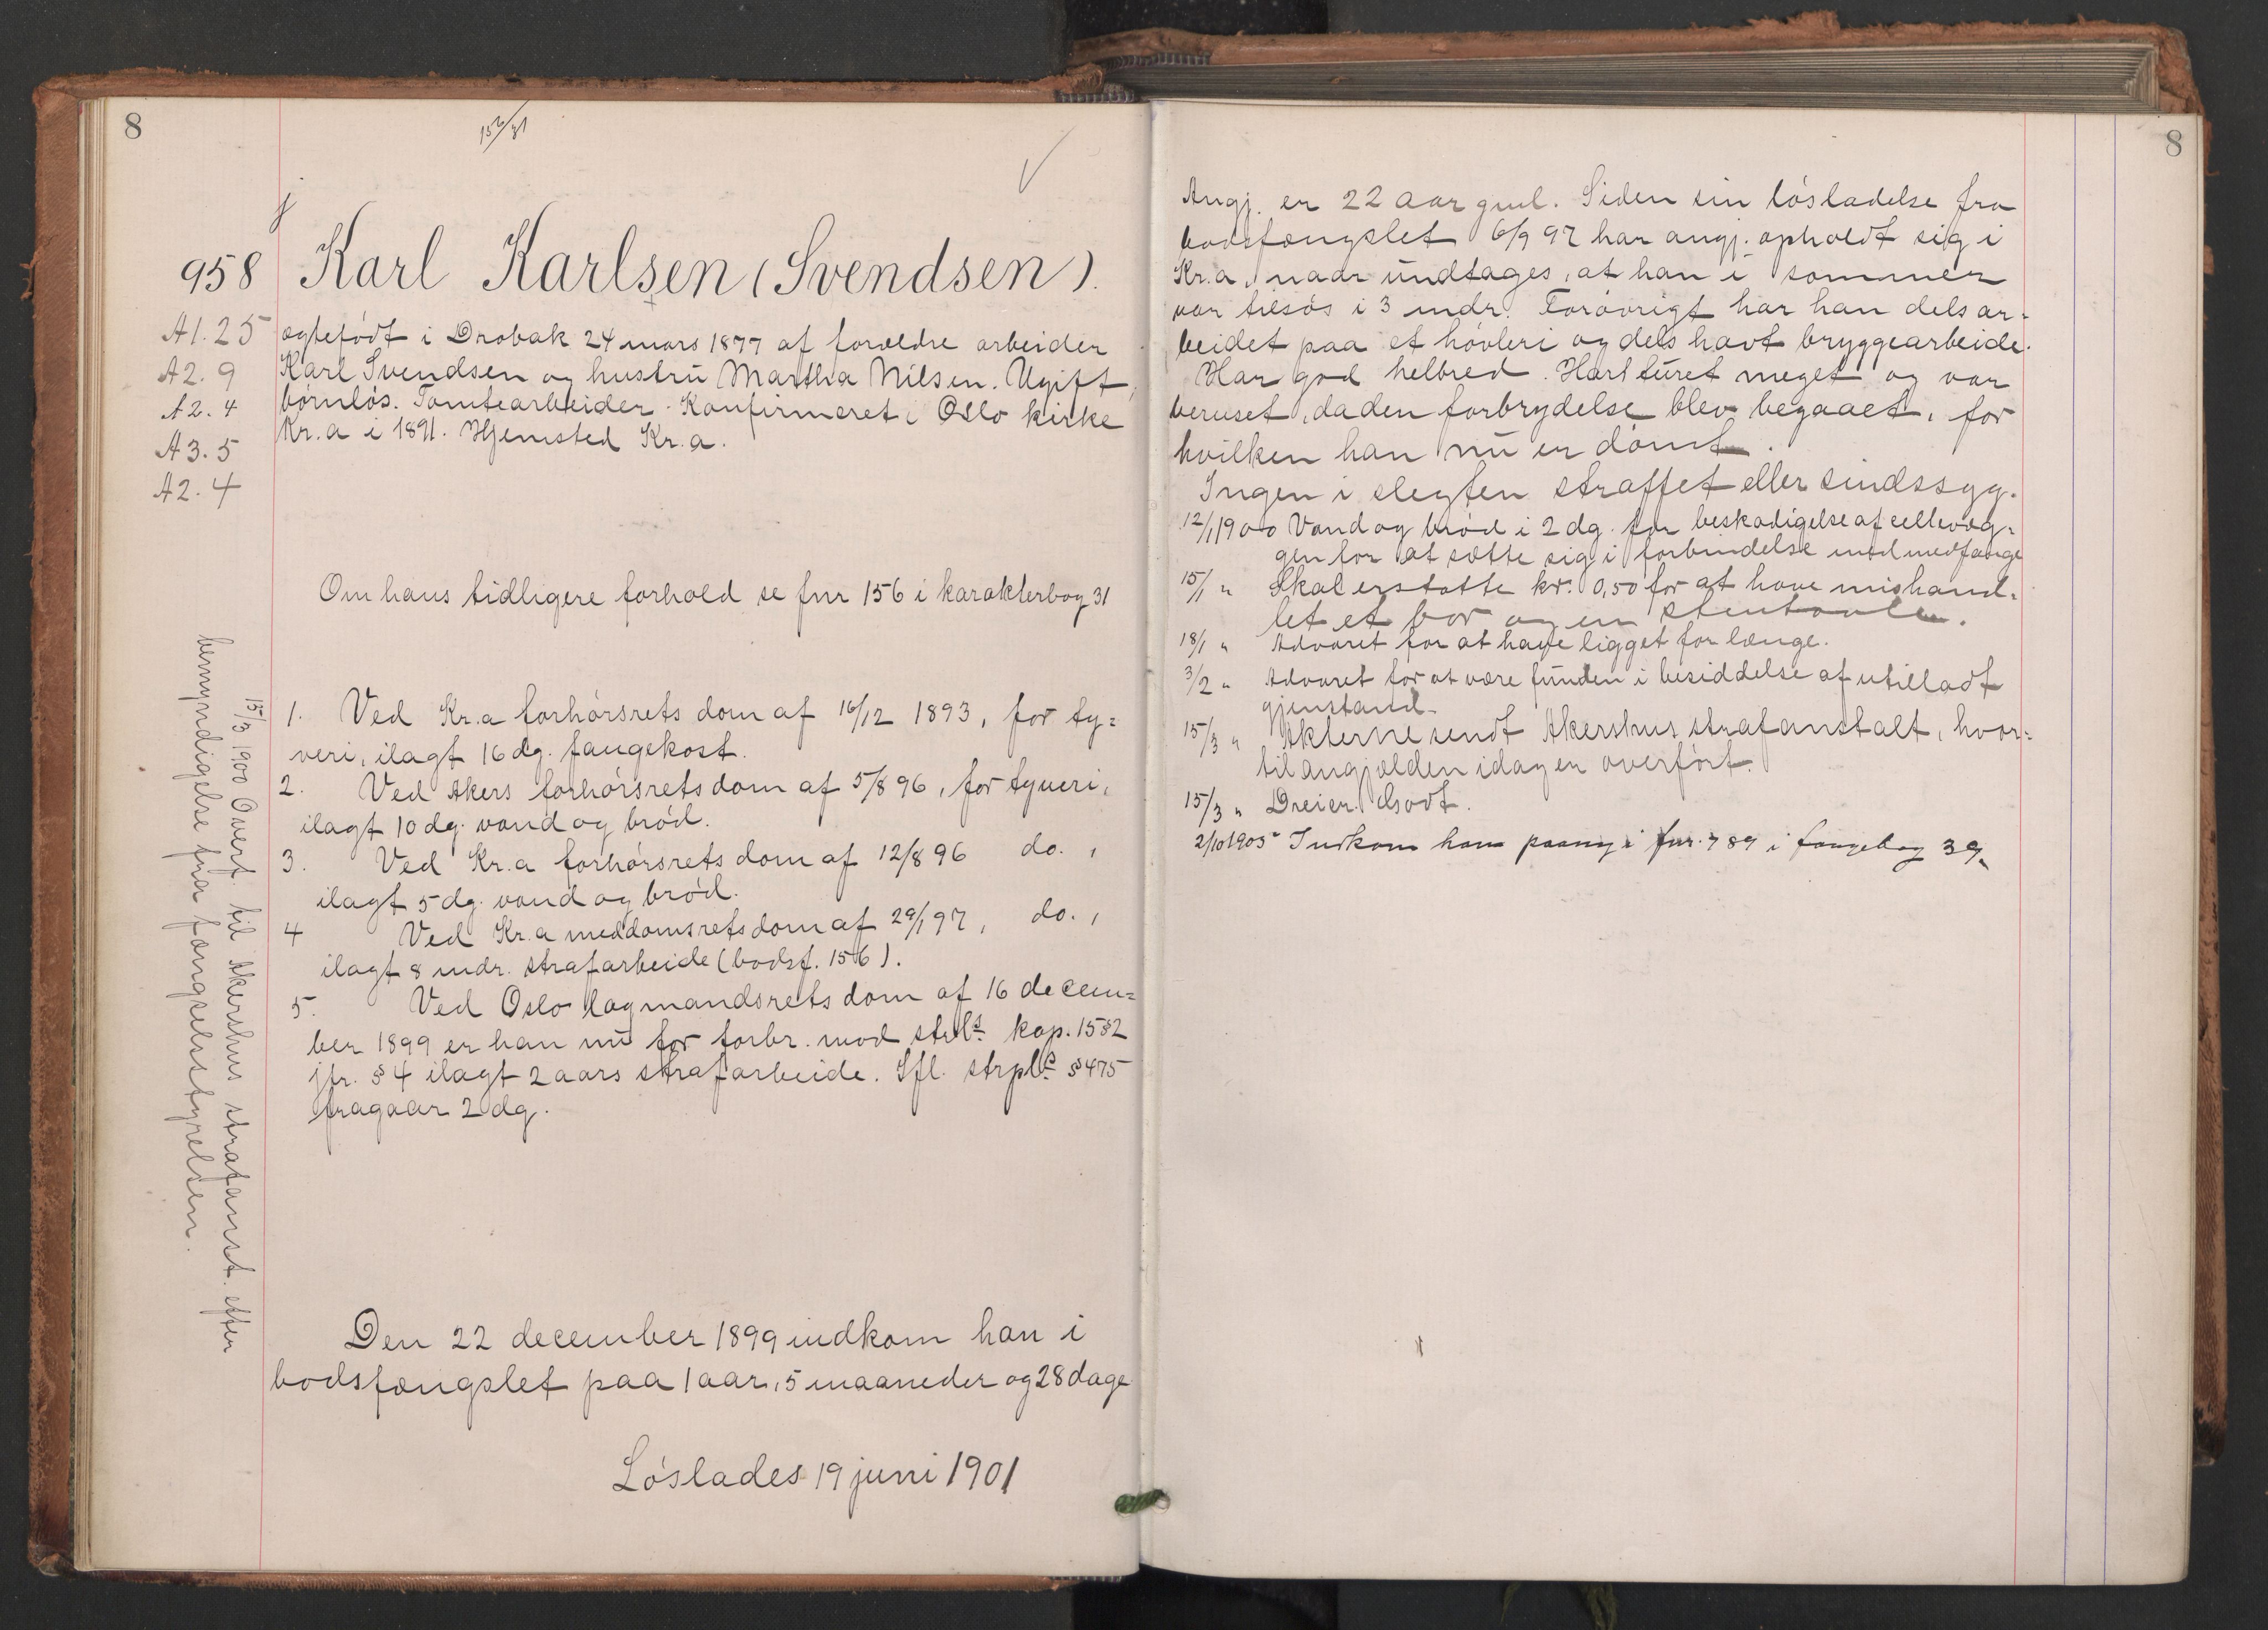 8
156/31
958
Karl Karlsen (Svendsen).
A1. 25
A2. 9
A2. 4
A3. 5
A2. 4
ægtefødt i Drøbak 24 mars 1877 af forældre arbeider
Karl Svendsen og hustru Martha Nilsen. Ugift,
børnløs. Tomtearbeider. Konfirmeret i Oslo kirke
Kr.a i 1891. Hjemsted Kr.a.
Om hans tidligere forhold se fnr 156 i karakterbog 31
1. Ved Kr.a forhørsrets dom af 16/12 1893, for ty=
veri, ilagt 16 dg. fangekost.
2. Ved Akers forhørsrets dom af 5/8 96, for tyveri,
ilagt 10 dg. vand og brød.
3. Ved Kr.a forhørsrets dom af 12/8 96 do.,
ilagt 5 dg. vand og brød.
4 Ved Kr.a meddomsrets dom af 29/1 97, do.,
ilagt 8 mdr. strafarbeide (bodsf. 156).
5. Ved Oslo lagmandsrets dom af 16 decem=
ber 1899 er han nu for forbr. mod strls kap. 15 § 2
jfr. § 4 ilagt 2 aars strafarbeide. Ifl. strpls § 475
fragaar 2 dg.
15/3 1900 Overf. til Akershus strafanst. efter
bemyndigelse fra fængselsstyrelsen.
Den 22 december 1899 indkom han i
bodsfængslet paa 1 aar, 5 maaneder og 28 dage
Løslades 19 juni 1901
8
Angj. er 22 aar gml. Siden sin løsladelse fra
bodsfængslet 6/9 97 har angj. opholdt sig i
Kr.a, naar undtages, at han i sommer
var tilsøs i 3 mdr. Forøvrigt har han dels ar=
beidet paa et høvleri og dels havt bryggearbeide.
Har god helbred. Har turet meget og var
beruset, da den forbrydelse blev begaaet, for
hvilken han nu er dømt.
Ingen i slegten straffet eller sindssyg.
12/1 1900 Vand og brød i 2 dg. for beskadigelse af cellevæg=
gen for at sætte sig i forbindelse med medfange
15/1 " Skal erstatte kr. 0,50 for at have mishand=
let et bor og en stentavle.
18/1 " Advaret for at have ligget for længe.
3/2 " Advaret for at være funden i besiddelse af utilladt
gjenstand.
15/3 " Akterne sendt Akershus strafanstalt, hvor=
til angjælden idag er overført.
15/3 " Dreier. Godt.
2/10 1905 Indkom han paany i fnr. 789 i fangebog 39.